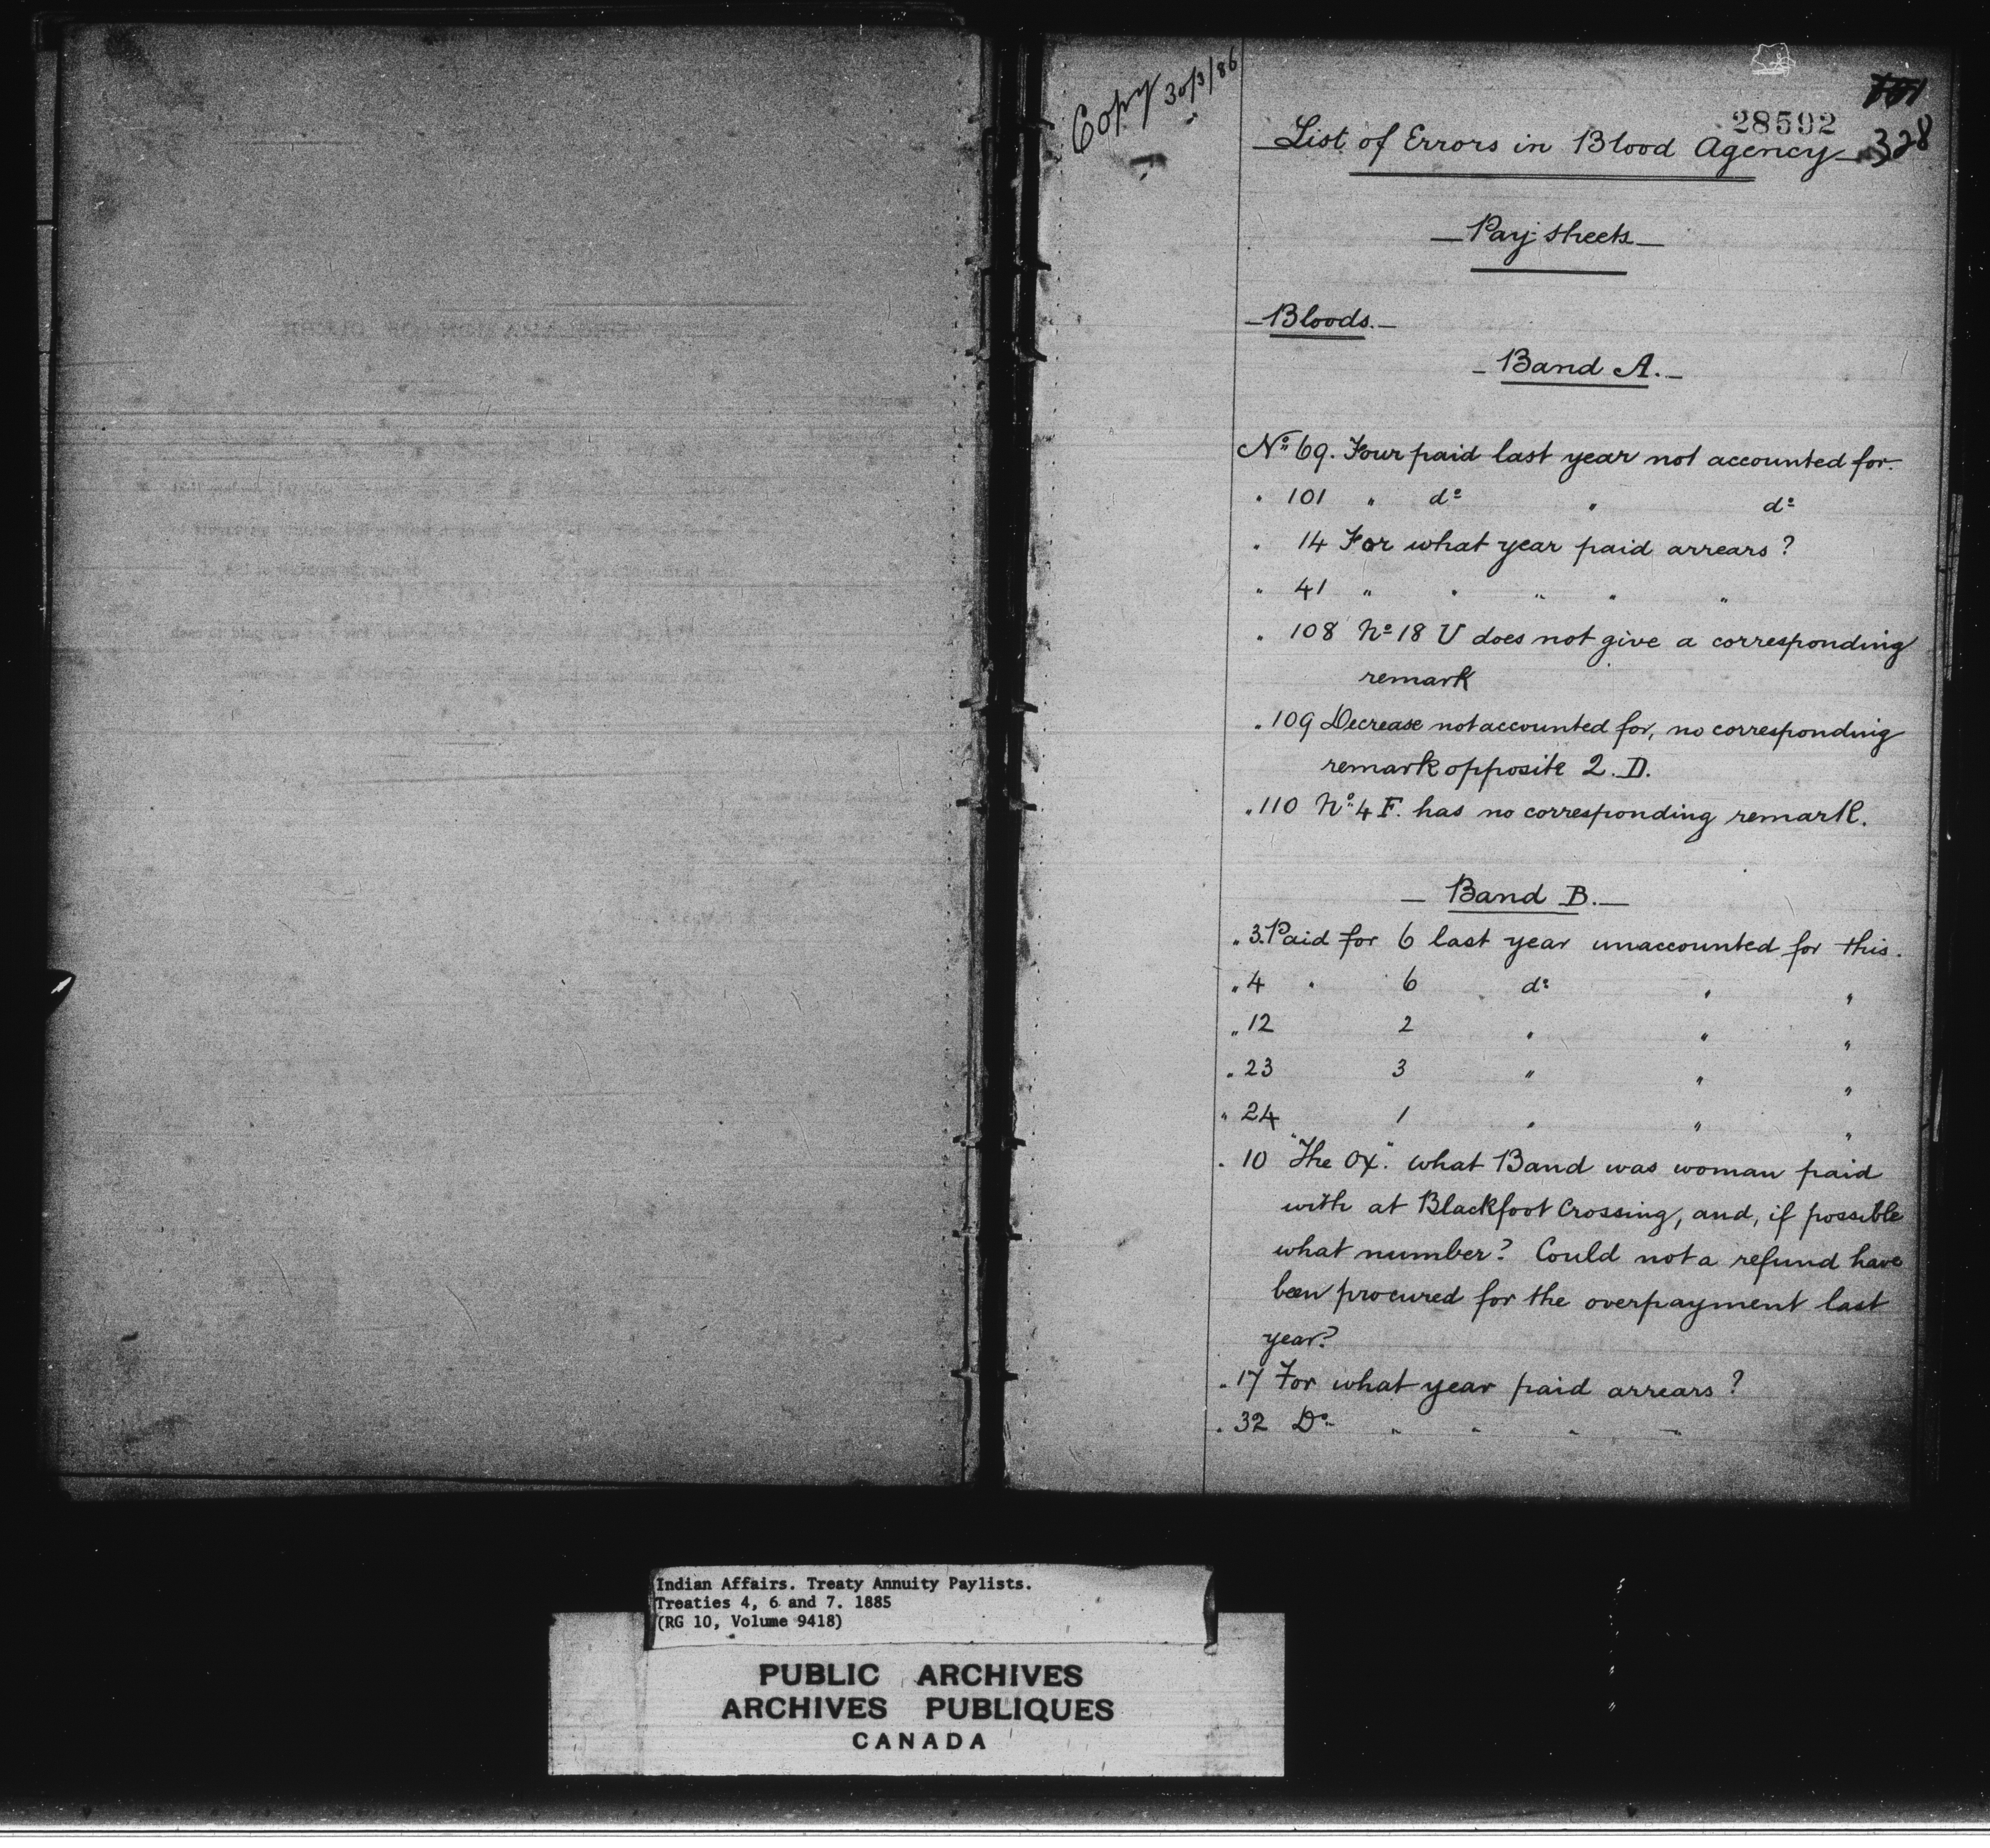 Copy 30/3/86
28592
328
List of Errors in Blood Agency
Pay-sheets
Bloods.
Band A.
No. 69. Four paid last year not accounted for.
" 101 " do " do
" 14 For what year paid arrears?
" 41 " " " " "
" 108 No 18 U does not give a corresponding
remark
" 109 Decrease not accounted for, no corresponding
remark opposite 2. D.
" 110 No. 4 F. has no corresponding remark.
Band B.
" 3. Paid for 6 last year unaccounted for this.
" 4 " 6 do " "
" 12 2 " " "
" 23 3 " " "
" 24 1 " " "
" 10 "The Ox". what Band was woman paid
with at Blackfoot Crossing, and, if possible
what number? Could not a refund have
been procured for the overpayment last
year?
" 17 For what year paid arrears?
" 32 Do " " " "
Indian Affairs. Treaty Annuity Paylists.
Treaties 4, 6 and 7. 1885
(RG 10, Volume 9418)
PUBLIC ARCHIVES
ARCHIVES PUBLIQUES
CANADA